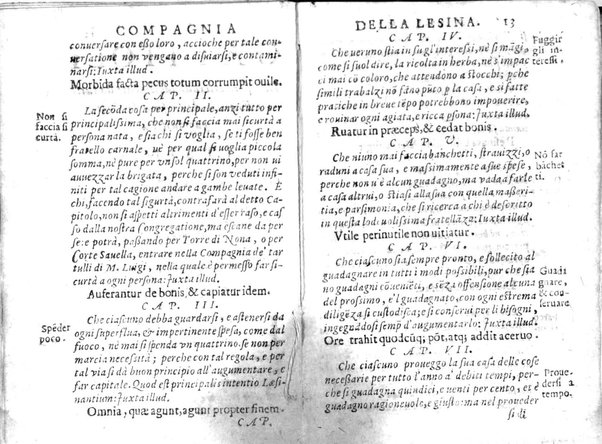 COMPAGNIA
conuersare con esso loro, accioche per tale con-
uersatione non vengano a disuiarsi, e contami-
narsi: Iuxta illud.
Morbida facta pecus totum corrumpit ouile.
CAP. II.
Non si faccia si curtà.
La secōda cosa per principale, anzi tutto per
principalissima, che non si faccia mai sicurtà a
persona nata, e siachi si voglia, se ti fosse ben
fratello carnale, uè per qual si voglia piccola
somma, nè pure per vn sol quattrino, per non ui
auuezzar la brigata, perche si son veduti infi-
niti per tal cagione andare a gambe leuate. E
chi, facendo tal sigurtà, contrafarà al detto Capi
tolo, non si aspetti altrimenti d'esser raso, e cas
so dalla nostra Congregatione, ma estane da per
se: e potrà, passando per Torre di Nona, o per
Corte Sauella, entrare nella Compagnia de' tar
tulli di M. Luigi, nella quale è permesso far si-
curtà a ogni persona: Iuxta illud.
Auferantur de bonis, & capiatur idem.
CAP. III.
Spēder poco.
Che ciascuno debba guardarsi, e astenersi da
ogni superflua, & impertinente spesa, come dal
fuoco, nè mai si spenda vn quattrino se non per
marcia necessità; perche con tal regola, e per
tal via si dà buon principio all'aumentare, e
far capitale. Quod est principalis intentio Læsi-
nantium: Iuxta illud.
Omnia, quæ agunt, agunt propter finem.
CAP.
DELLA LESINA. 13
CAP. IV.
Fuggir gli interessi.
Che ueruno stia in su gl'interessi, nè si mági,
come si suol dire, la ricolta in herba, nè s'impac
ci mai cō coloro, che attendono a stocchi; pche
simili trabalzi nō fāno pūto p la casa, e sì fatte
pratiche in breue tēpo potrebbono impouerire,
e rouinar ogni agiata, e ricca psona: Iuxta illud.
Ruatur in præceps, & cedat bonis.
CAP. V.
Nō far bāchetti
Che niuno mai faccia banchetti, strauizzi, o
raduni a casa sua, e massimamente a sue spese,
perche non u'è alcun guadagno, ma vada a farle
a casa altrui, o stiasi alla sua con quella masseri-
tia, e parsimonia, che si ricerca a chi è descritto
in questa lodeuolissima fratellāza: Iuxta illud.
Vtile per inutile non uitiatur.
CAP. VI.
Guadagnare e conseruare.
Che ciascuno sia sempre pronto, e sollecito al
guadagnare in tutti i modi possibili, pur che siā
no guadagni cōueneti, e sēza offensione alcuna
del prossimo, e'l guadagnato, con ogni estrema
diligēza si custodisca; e si conserui per li bisogni,
ingegnādosi semp d'augumentarlo: Iuxta illud.
Ore trahit quodcūq; pōt, atq; addit aceruo.
CAP. VII.
Prouedersi a tempo.
Che ciascuno proueggo la sua casa delle cose
necessarie per tutto l'anno a' debiti tempi, per-
che si guadagna quindici, e uenti per cento, et è
guadagno ragioneuole, e giusto: ma nel proueder
si di